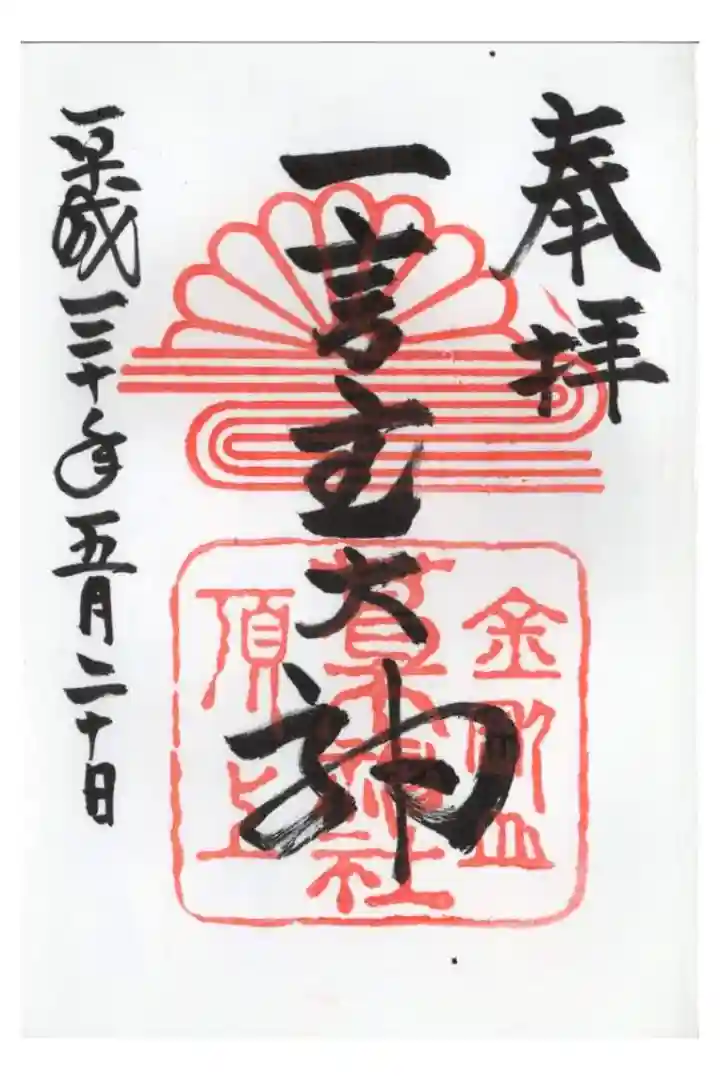 奉拝
一言主大神
金剛山
葛木神社
頂上
平成三十年五月二十日